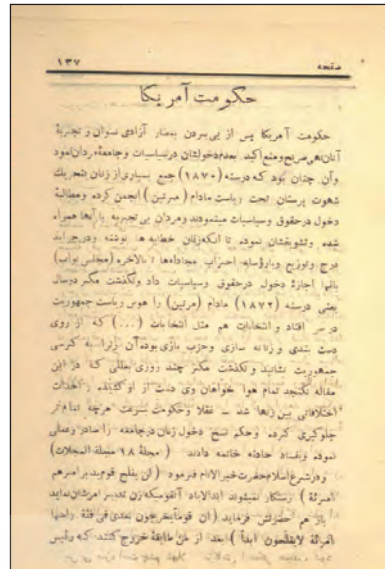 صفحه
۱۳۷
حکومت آمریکا
حکومت آمریکا پس از پی بردن بمضار آزادی نسوان و تجربهٔ
آنان نهی صریح و منع اکید بعدم دخولشان در سیاسیات و جامعهٔ مردان نمود
و آن چنان بود که در سنه (۱۸۷۰) جمع بسیاری از زنان بتحریك
شهوت پرستان تحت ریاست مادام (مرتین) انجمن کرده و مطالبهٔ
دخول در حقوق و سیاسیات مینمودند و مردان بی تجربه با آنها همراه
شده و تشویقشان نموده تا آنکه زنان خطابه ها نوشته و در جراید
درج و توزیع و با رؤسایه احزاب مجادله ها تا بالاخره (مجلس نواب)
بانها اجازهٔ دخول در حقوق وسیاسیات داد ونگذشت مگر دو سال
یعنی درسنه (۱۸۷۲) مادام (مرتین) را هوس ریاست جمهوریت
در سر افتاد و انتخابات هم مثل انتخابات (...) که از روی
دست بندی و زنانه سازی وحزب بازی بوده آن زنرا به کرسی
جمهوریت نشانید و نگذشت مگر چند روزی بعللی که در این
مقاله نگنجد تمام هوا خواهان وی دست از او کشیده و احداث
اختلافاتی بین زنها شد ـ عقلا وحکومت بسرعت هرچه تمامتر
جلوگیری کرده وحکم نسخ دخول زنان درجامعه را صادر وعملی
نموده وبفساد حادثه خاتمه دادند (مجلهٔ ۱۸ مجلة المجلات)
ودر شرع اسلام حضرت خیر الانام فرمود (لن یفلح قوم یدبر امرهم
امرئة) رستگار نمیشوند ابدالاباد آنقومیکه زن تدبیر امرشان نماید
باز هم حضرتش فرماید (ان قوماً یخرجون بعدی فی فئة راسها
امرئة لایفلحون ابداً) بعد از من طایفهٔ خروج کنند که رئیس